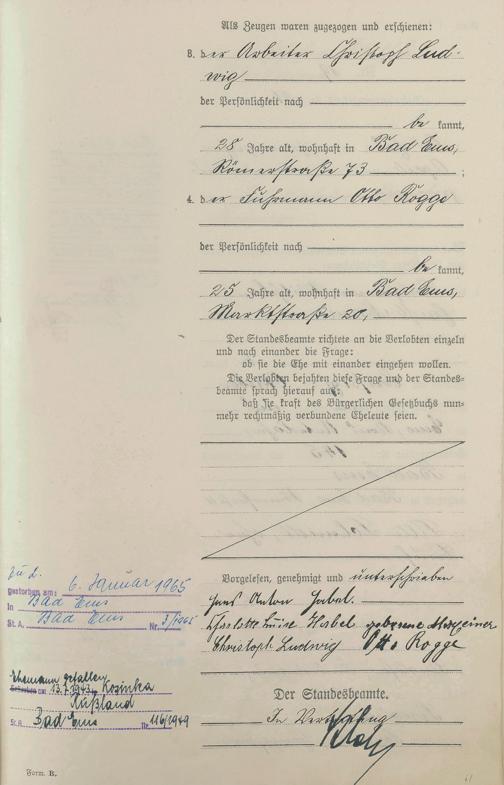 Als Zeugen waren zugezogen und erschienen:
3. der Arbeiter Christoph Lud-
wig
der Persönlichkeit nach
be kannt,
28 Jahre alt, wohnhaft in Bad Ems,
Römerstraße 73 ;
4. der Fuhrmann Otto Rogge
der Persönlichkeit nach
be kannt,
25 Jahre alt, wohnhaft in Bad Ems,
Marktstraße 20,
Der Standesbeamte richtete an die Verlobten einzeln
und nach einander die Frage:
ob sie die Ehe mit einander eingehen wollen.
Die Verlobten bejahten diese Frage und der Standes-
beamte sprach hierauf aus:
daß sie kraft des Bürgerlichen Gesetzbuchs nun-
mehr rechtmäßig verbundene Eheleute seien.
Vorgelesen, genehmigt und unterschrieben
Hans Anton Habel.
Charlotte Luise Habel geborene
Christoph Ludwig Otto Rogge
Der Standesbeamte.
In Vertretung
zu 2.
gestorben am: 6. Januar 1965
in Bad Ems
St. A. Bad Ems Nr. 3/1965
Ehemann gefallen
am 13.7.1943, Kosinka
Rußland
St. A. Bad Ems Nr. 116/1949
Form. B.